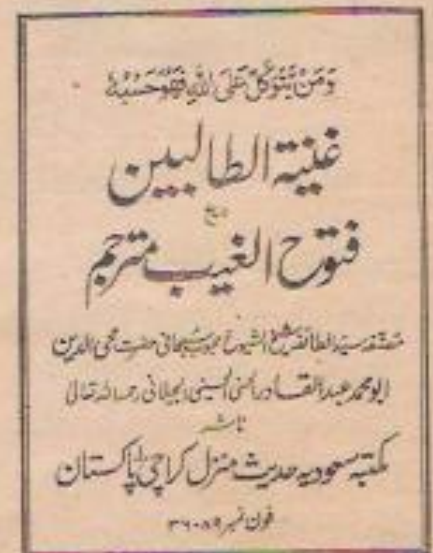 وَمَنْ يَّتَوَكَّلْ عَلَى اللّٰهِ فَهُوَ حَسْبُهٗ
غنیۃ الطالبین
مع
فتوح الغیب مترجم
مصنفہ سید الطائفہ شیخ الشیوخ محبوب سبحانی حضرت محی الدین
ابو محمد عبدالقادر الحسنی الحسینی الجیلانی رحمہ اللہ تعالیٰ
ناشر
مکتبہ سعودیہ حدیث منزل کراچی پاکستان
فون نمبر ۳۶۰۸۹